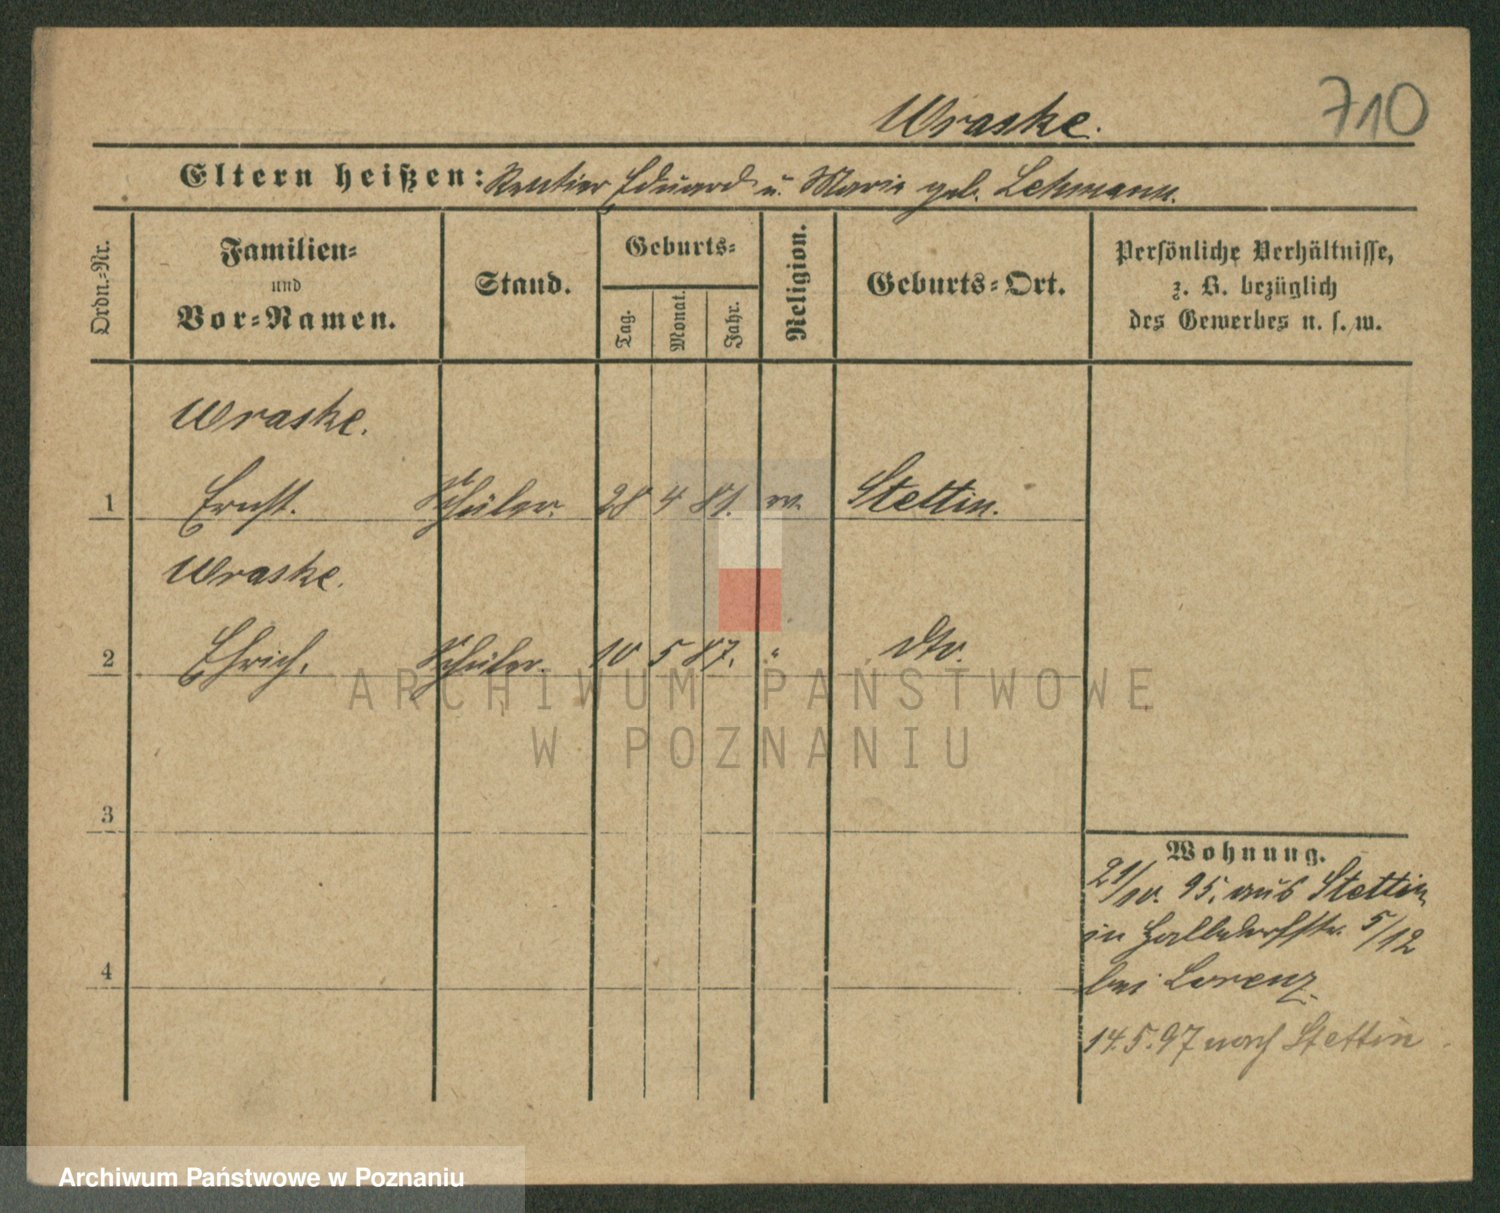 Wraske.
710
Eltern heißen: Rentier Eduard u. Marie geb. Lehmann.
Ordn.-Nr.
Familien-
und
Vor-Namen.
Stand.
Geburts-
Tag.
Monat.
Jahr.
Religion.
Geburts-Ort.
Persönliche Verhältnisse,
z. B. bezüglich
des Gewerbes u. s. w.
Wraske.
1 Ernst. Schüler. 28 4 81. ev. Stettin.
Wraske.
2 Ehrich. Schüler. 10 5 87. " dto.
3
4
Wohnung.
21/10. 95. aus Stettin
in Halbdorfstr. 5/12
bei Lorenz
14.5.97 nach Stettin.
ARCHIWUM PAŃSTWOWE
W POZNANIU
Archiwum Państwowe w Poznaniu